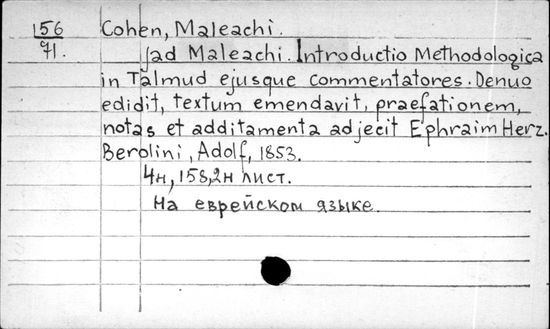 156 Cohen, Maleachi.
71. Jad Maleachi. Introductio Methodologica
in Talmud ejusque commentatores. Denuo
edidit, textum emendavit, praefationem,
notas et additamenta adjecit Ephraim Herz.
Berolini, Adolf, 1853.
4н, 158, 2н лист.
На еврейском языке.